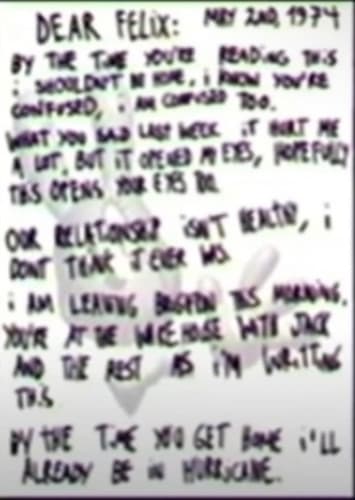 DEAR FELIX: MAY 2ND, 1974
BY THE TIME YOU'RE READING THIS
i SHOULDN'T BE HOME, i KNOW YOU'RE
CONFUSED, i AM CONFUSED TOO.
WHAT YOU SAID LAST WEEK iT HURT ME
A LOT, BUT iT OPENED MY EYES, HOPEFULLY
THIS OPENS YOUR EYES TOO.
OUR RELATIONSHIP iSN'T HEALTHY, i
DONT THINK iT EVER WAS.
i AM LEAVING THIS MORNING.
YOU'RE AT THE WITH JACK
AND THE REST AS i'M WRITING
THIS.
BY THE TIME YOU GET HOME i'LL
ALREADY BE iN HURRICANE.